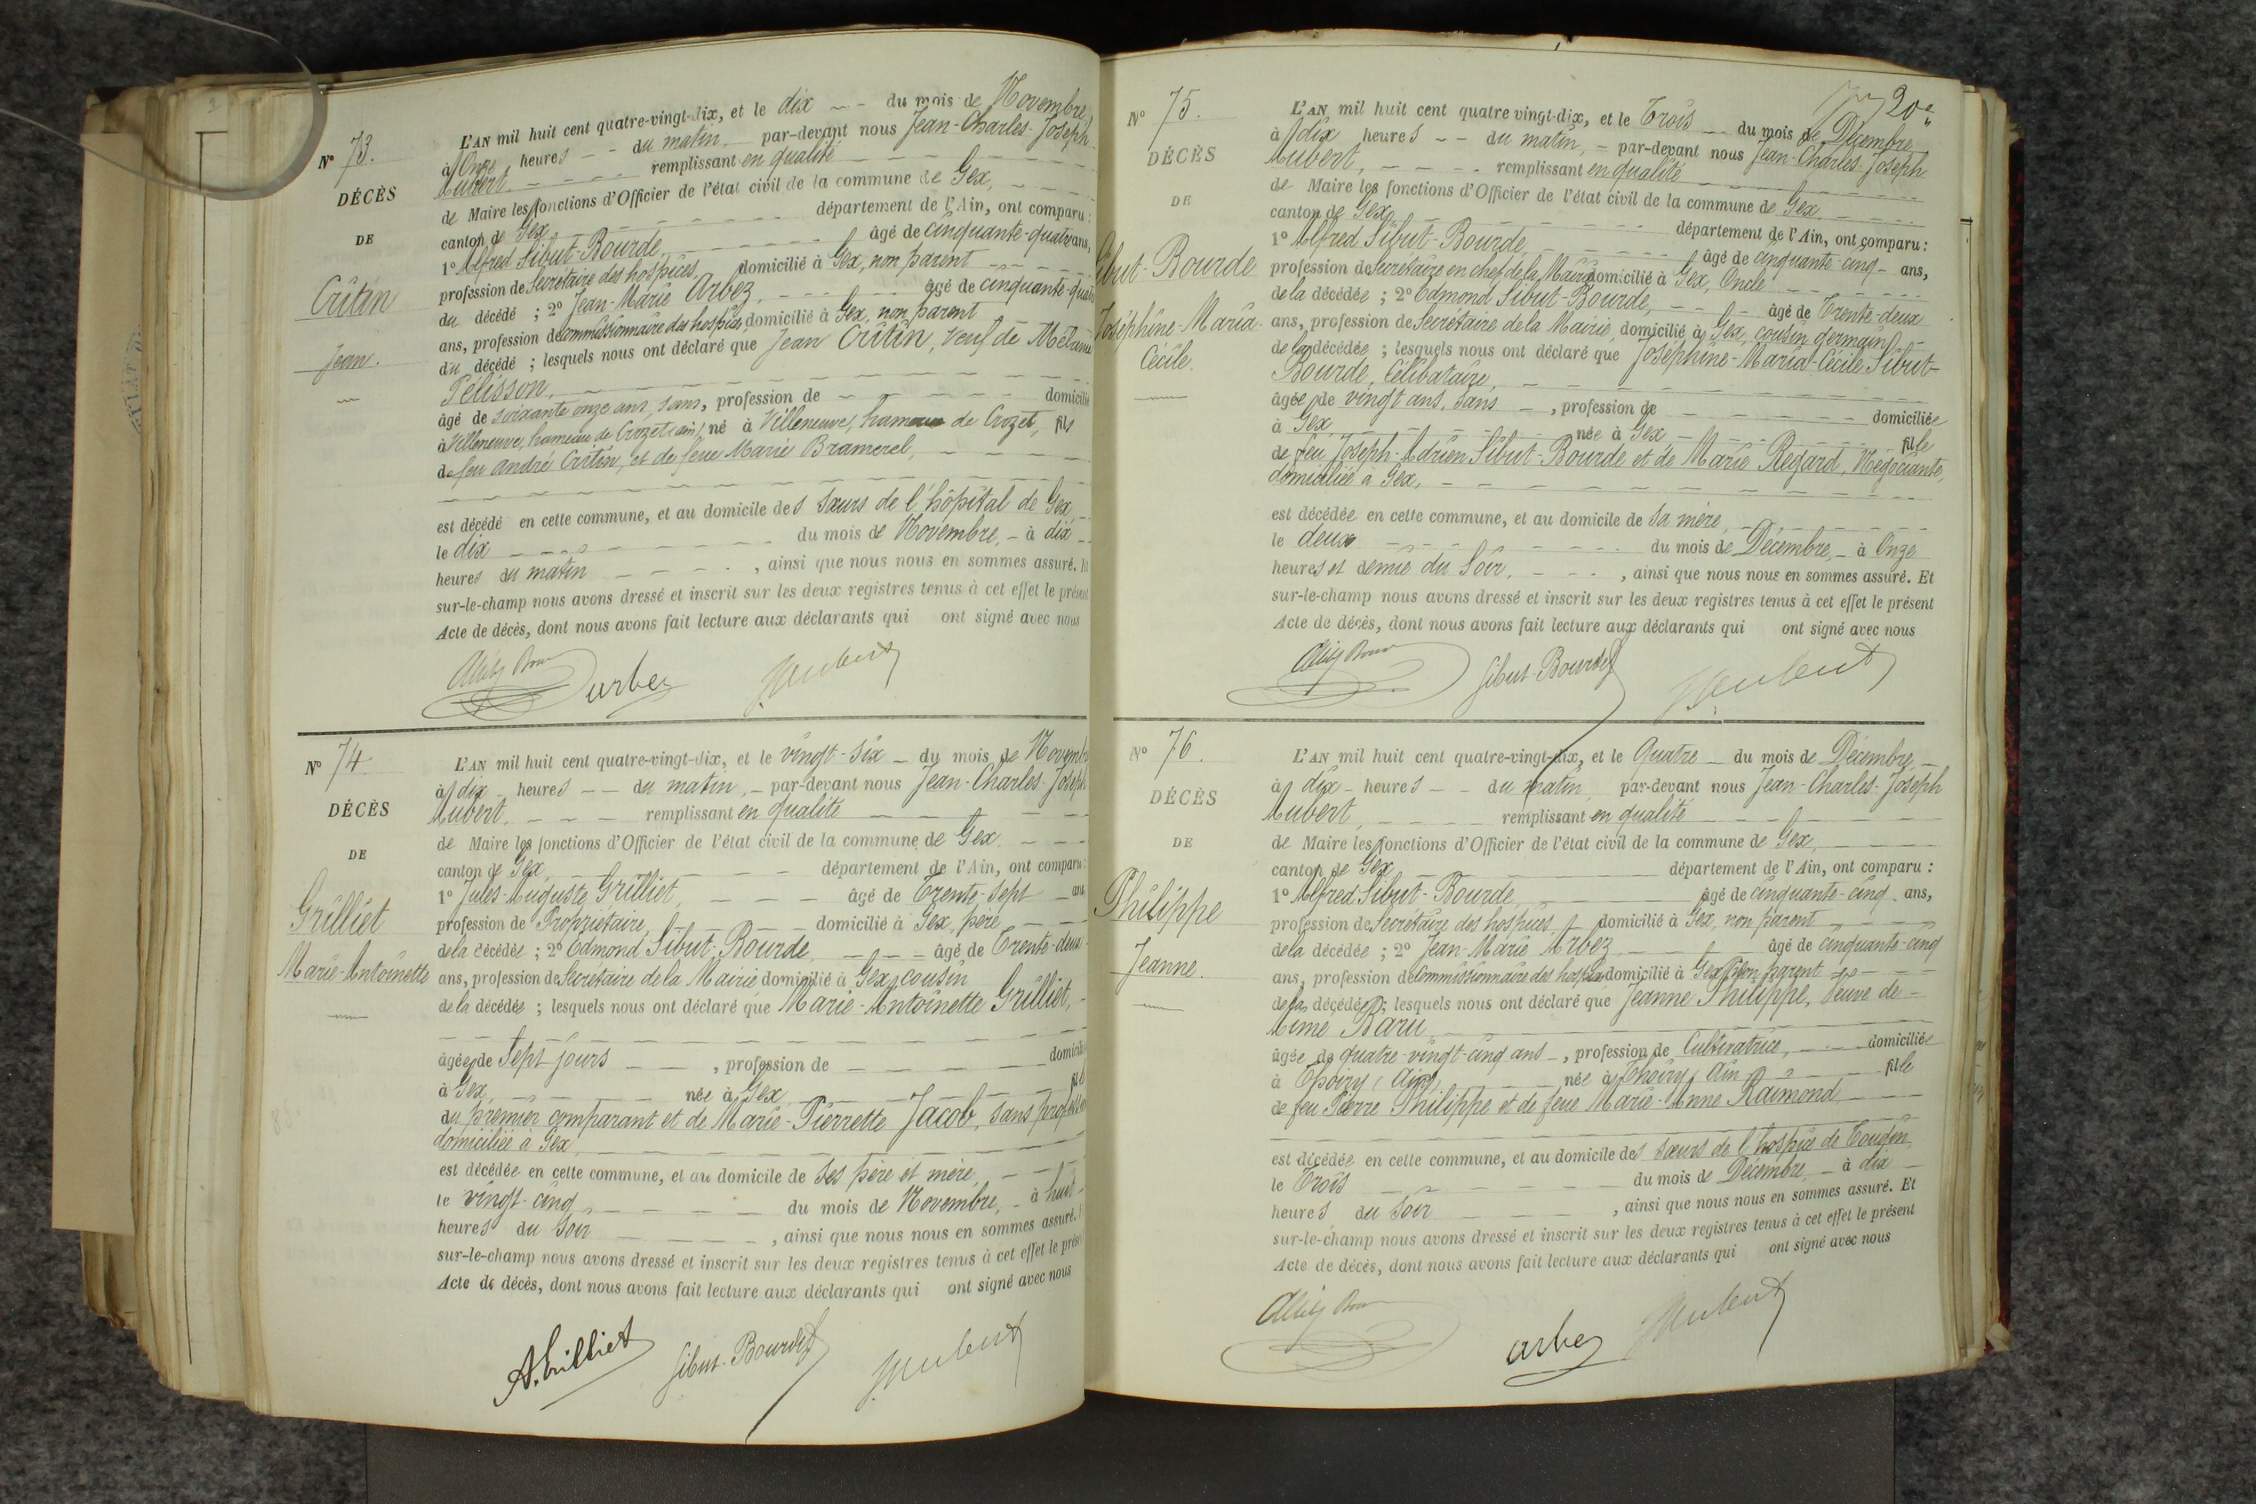 N° 73.
DÉCÈS
DE
Critin
Jean.
L'AN mil huit cent quatre-vingt-dix, et le dix du mois de Novembre
à Onze heures du matin par-devant nous Jean-Charles-Joseph
Hubert remplissant en qualité
de Maire les fonctions d'Officier de l'état civil de la commune de Gex,
canton de Gex département de l'Ain, ont comparu :
1° Alfred Sibut-Bourde, âgé de cinquante-quatre ans,
profession de Secrétaire des hospices, domicilié à Gex, non parent
du décédé ; 2° Jean-Marie Arbez, âgé de cinquante-quatre
ans, profession de commissionnaire des hospices, domicilié à Gex, non parent
du décédé ; lesquels nous ont déclaré que Jean Critin, veuf de Mélanie
Pélisson,
âgé de soixante onze ans, sans, profession de domicilié
à Villeneuve, hameau de Crozet (ain), né à Villeneuve, hameau de Crozet, fils
de feu André Critin, et de feue Marie Bramerel,
est décédé en cette commune, et au domicile des Sœurs de l'hôpital de Gex,
le dix du mois de Novembre, à dix
heures du matin, ainsi que nous nous en sommes assuré. Et
sur-le-champ nous avons dressé et inscrit sur les deux registres tenus à cet effet le présent
Acte de décès, dont nous avons fait lecture aux déclarants qui ont signé avec nous
arbez
N° 74
DÉCÈS
DE
Grilliet
Marie-Antoinette
L'AN mil huit cent quatre-vingt-dix, et le vingt-six du mois de Novembre
à dix heures du matin, par-devant nous Jean-Charles-Joseph
Hubert. remplissant en qualité
de Maire les fonctions d'Officier de l'état civil de la commune de Gex.
canton de Gex, département de l'Ain, ont comparu :
1° Jules-Auguste Grilliet, âgé de Trente-sept ans
profession de Propriétaire, domicilié à Gex, père
de la décédée ; 2° Edmond Sibut-Bourde, âgé de Trente-deux
ans, profession de Secrétaire de la Mairie domicilié à Gex, cousin
de la décédée ; lesquels nous ont déclaré que Marie-Antoinette Grilliet,
âgée de Sept jours, profession de domiciliée
à Gex, née à Gex, fille
du premier comparant et de Marie-Pierrette Jacob, sans profession
domiciliée à Gex,
est décédée en cette commune, et au domicile de ses père et mère,
le vingt-cinq du mois de Novembre, à huit
heures du Soir, ainsi que nous nous en sommes assuré. Et
sur-le-champ nous avons dressé et inscrit sur les deux registres tenus à cet effet le présent
Acte de décès, dont nous avons fait lecture aux déclarants qui ont signé avec nous
A. Grilliet Sibut-Bourde
20e
N° 75.
DÉCÈS
DE
Sibut-Bourde
Joséphine-Maria-
Cécile.
L'AN mil huit cent quatre vingt-dix, et le Trois du mois de Décembre
à dix heures du matin, par-devant nous Jean-Charles-Joseph
Hubert, remplissant en qualité
de Maire les fonctions d'Officier de l'état civil de la commune de Gex
canton de Gex, département de l'Ain, ont comparu :
1° Alfred Sibut-Bourde, âgé de cinquante cinq ans,
profession de Secrétaire en chef de la Mairie domicilié à Gex, Oncle
de la décédée ; 2° Edmond Sibut-Bourde, âgé de Trente-deux
ans, profession de Secrétaire de la Mairie, domicilié à Gex, cousin germain
de la décédée ; lesquels nous ont déclaré que Joséphine-Maria-Cécile Sibut-
Bourde, Célibataire,
âgée de vingt ans, sans, profession de domiciliée
à Gex née à Gex, fille
de feu Joseph-Adrien Sibut-Bourde et de Marie Regard, Négociante,
domiciliée à Gex,
est décédée en cette commune, et au domicile de sa mère,
le deux du mois de Décembre, à Onze
heures et demie du Soir, ainsi que nous nous en sommes assuré. Et
sur-le-champ nous avons dressé et inscrit sur les deux registres tenus à cet effet le présent
Acte de décès, dont nous avons fait lecture aux déclarants qui ont signé avec nous
Sibut-Bourde
N° 76.
DÉCÈS
DE
Philippe
Jeanne.
L'AN mil huit cent quatre-vingt-dix, et le Quatre du mois de Décembre,
à dix heures du matin, par-devant nous Jean-Charles-Joseph
Hubert, remplissant en qualité
de Maire les fonctions d'Officier de l'état civil de la commune de Gex,
canton de Gex département de l'Ain, ont comparu :
1° Alfred Sibut-Bourde, âgé de cinquante-cinq ans,
profession de Secrétaire des hospices, domicilié à Gex, non parent
de la décédée ; 2° Jean-Marie Arbez âgé de cinquante-cinq
ans, profession de Commissionnaire des hospices domicilié à Gex, Non parent
de la décédée ; lesquels nous ont déclaré que Jeanne Philippe, Veuve de
Aimé Baru
âgée de quatre-vingt-cinq ans, profession de Cultivatrice, domiciliée
à Thoiry (Ain), née à Thoiry, Ain fille
de feu Pierre Philippe et de feue Marie-Anne Raimond
est décédée en cette commune, et au domicile des sœurs de l'hospice de Tougin,
le Trois du mois de Décembre, à dix
heures du Soir, ainsi que nous nous en sommes assuré. Et
sur-le-champ nous avons dressé et inscrit sur les deux registres tenus à cet effet le présent
Acte de décès, dont nous avons fait lecture aux déclarants qui ont signé avec nous
arbez